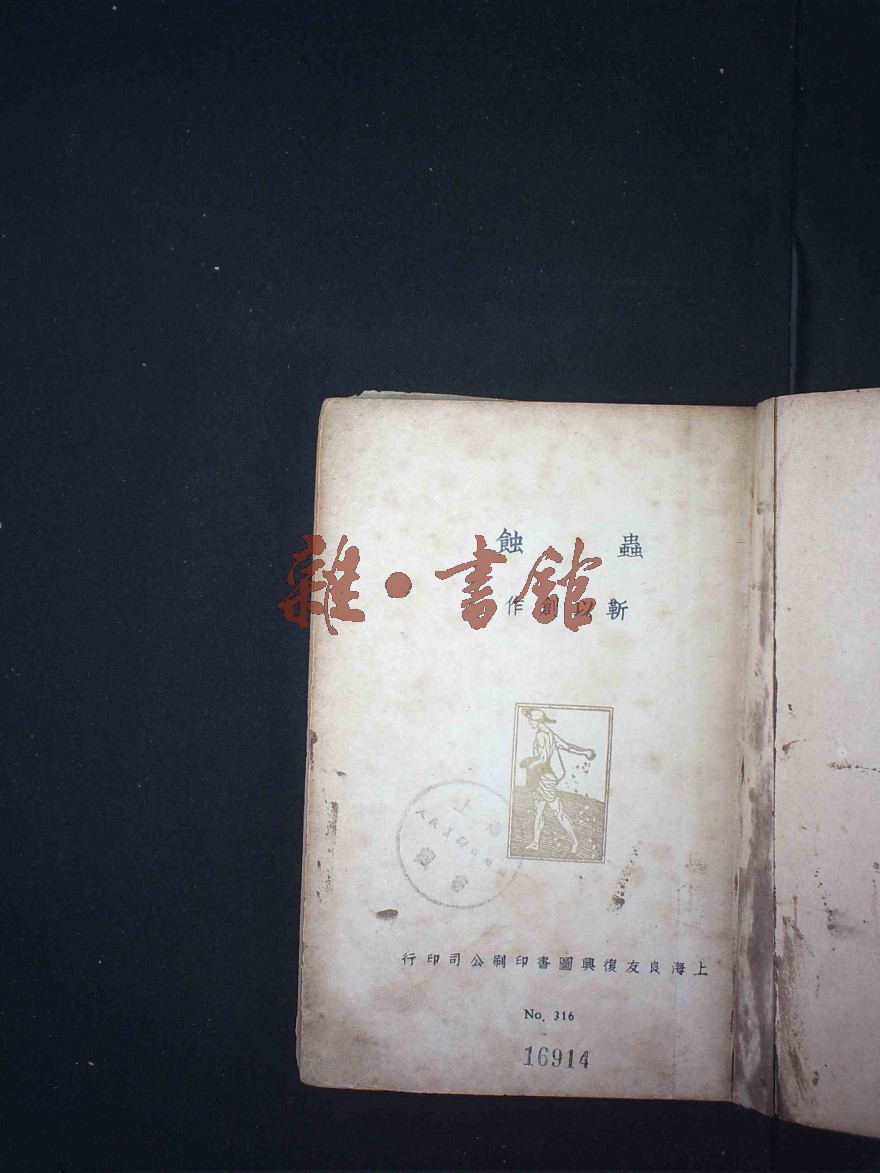 雜·書館
蟲蝕
靳以創作
上海良友復興圖書印刷公司印行
No. 316
16914